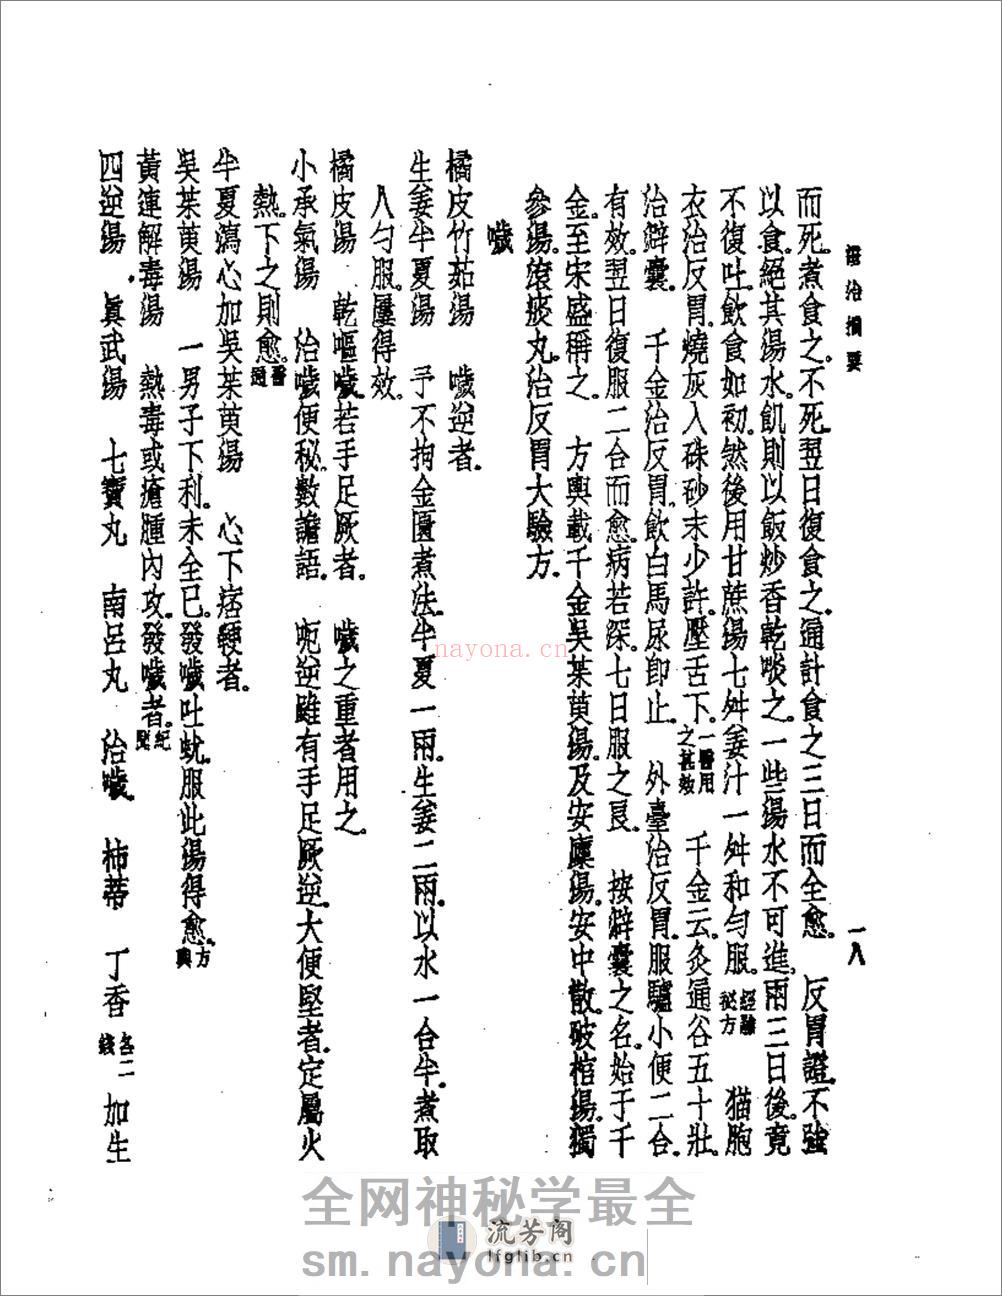 證治摘要
一八
而死。煮食之。不死。翌日復食之。通計食之三日而全愈。 反胃證。不強
以食。絕其湯水。飢則以飯炒香乾啖之。一些湯水不可進。兩三日後。竟
不復吐。飲食如初。然後用甘蔗湯七舛姜汁一舛和勻服。經驗秘方 猫胞
衣治反胃。燒灰入硃砂末少許。壓舌下。一醫用之甚效 千金云。灸通谷五十壯。
治癖囊 千金治反胃。飲白馬尿卽止。 外臺治反胃。服驢小便二合。
有效。翌日復服二合而愈。病若深。七日服之良 按癖囊之名。始于千
金。至宋盛稱之。 方輿載千金吳茱萸湯。及安
湯。安中散。破棺湯。獨
參湯。滾痰丸。治反胃大驗方。
噦
橘皮竹茹湯 噦逆者。
生姜半夏湯 予不拘金匱煮法。半夏一兩。生姜二兩。以水一合半。煮取
八勺服。屢得效。
橘皮湯 乾嘔噦。若手足厥者。 噦之重者用之。
小承氣湯 治噦便秘。數譫語。 呃逆雖有手足厥逆。大便堅者。定屬火
熱。下之則愈。醫通
半夏瀉心加吳茱萸湯 心下痞鞕者。
吳茱萸湯 一男子下利。未全已。發噦吐蚘。服此湯得愈。方輿
黃連解毒湯 熱毒或瘡腫內攻。發噦者。紀聞
四逆湯 眞武湯 七寶丸 南呂丸 治噦。 柿蒂 丁香各二錢 加生
nayona.cn
全网神秘学最全
流芳阁
lfglib.cn
sm.nayona.cn